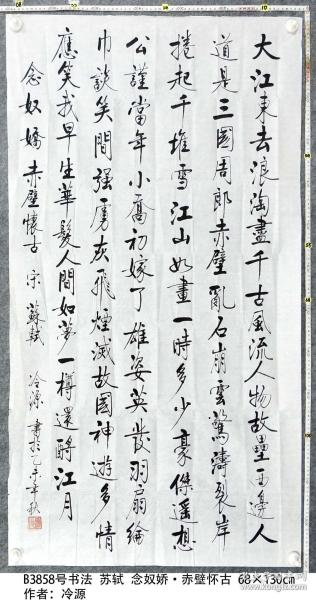 大江東去浪淘盡千古風流人物故壘西邊人
道是三國周郎赤壁亂石崩雲驚濤裂岸
捲起千堆雪江山如畫一時多少豪傑遥想
公謹當年小喬初嫁了雄姿英發羽扇綸
巾談笑間强虜灰飛煙滅故國神遊多情
應笑我早生華髮人間如夢一樽還酹江月
念奴嬌 赤壁懷古 宋 蘇軾 冷源 書於
B3858号书法 苏轼 念奴娇·赤壁怀古 68×130cm
作者：冷源